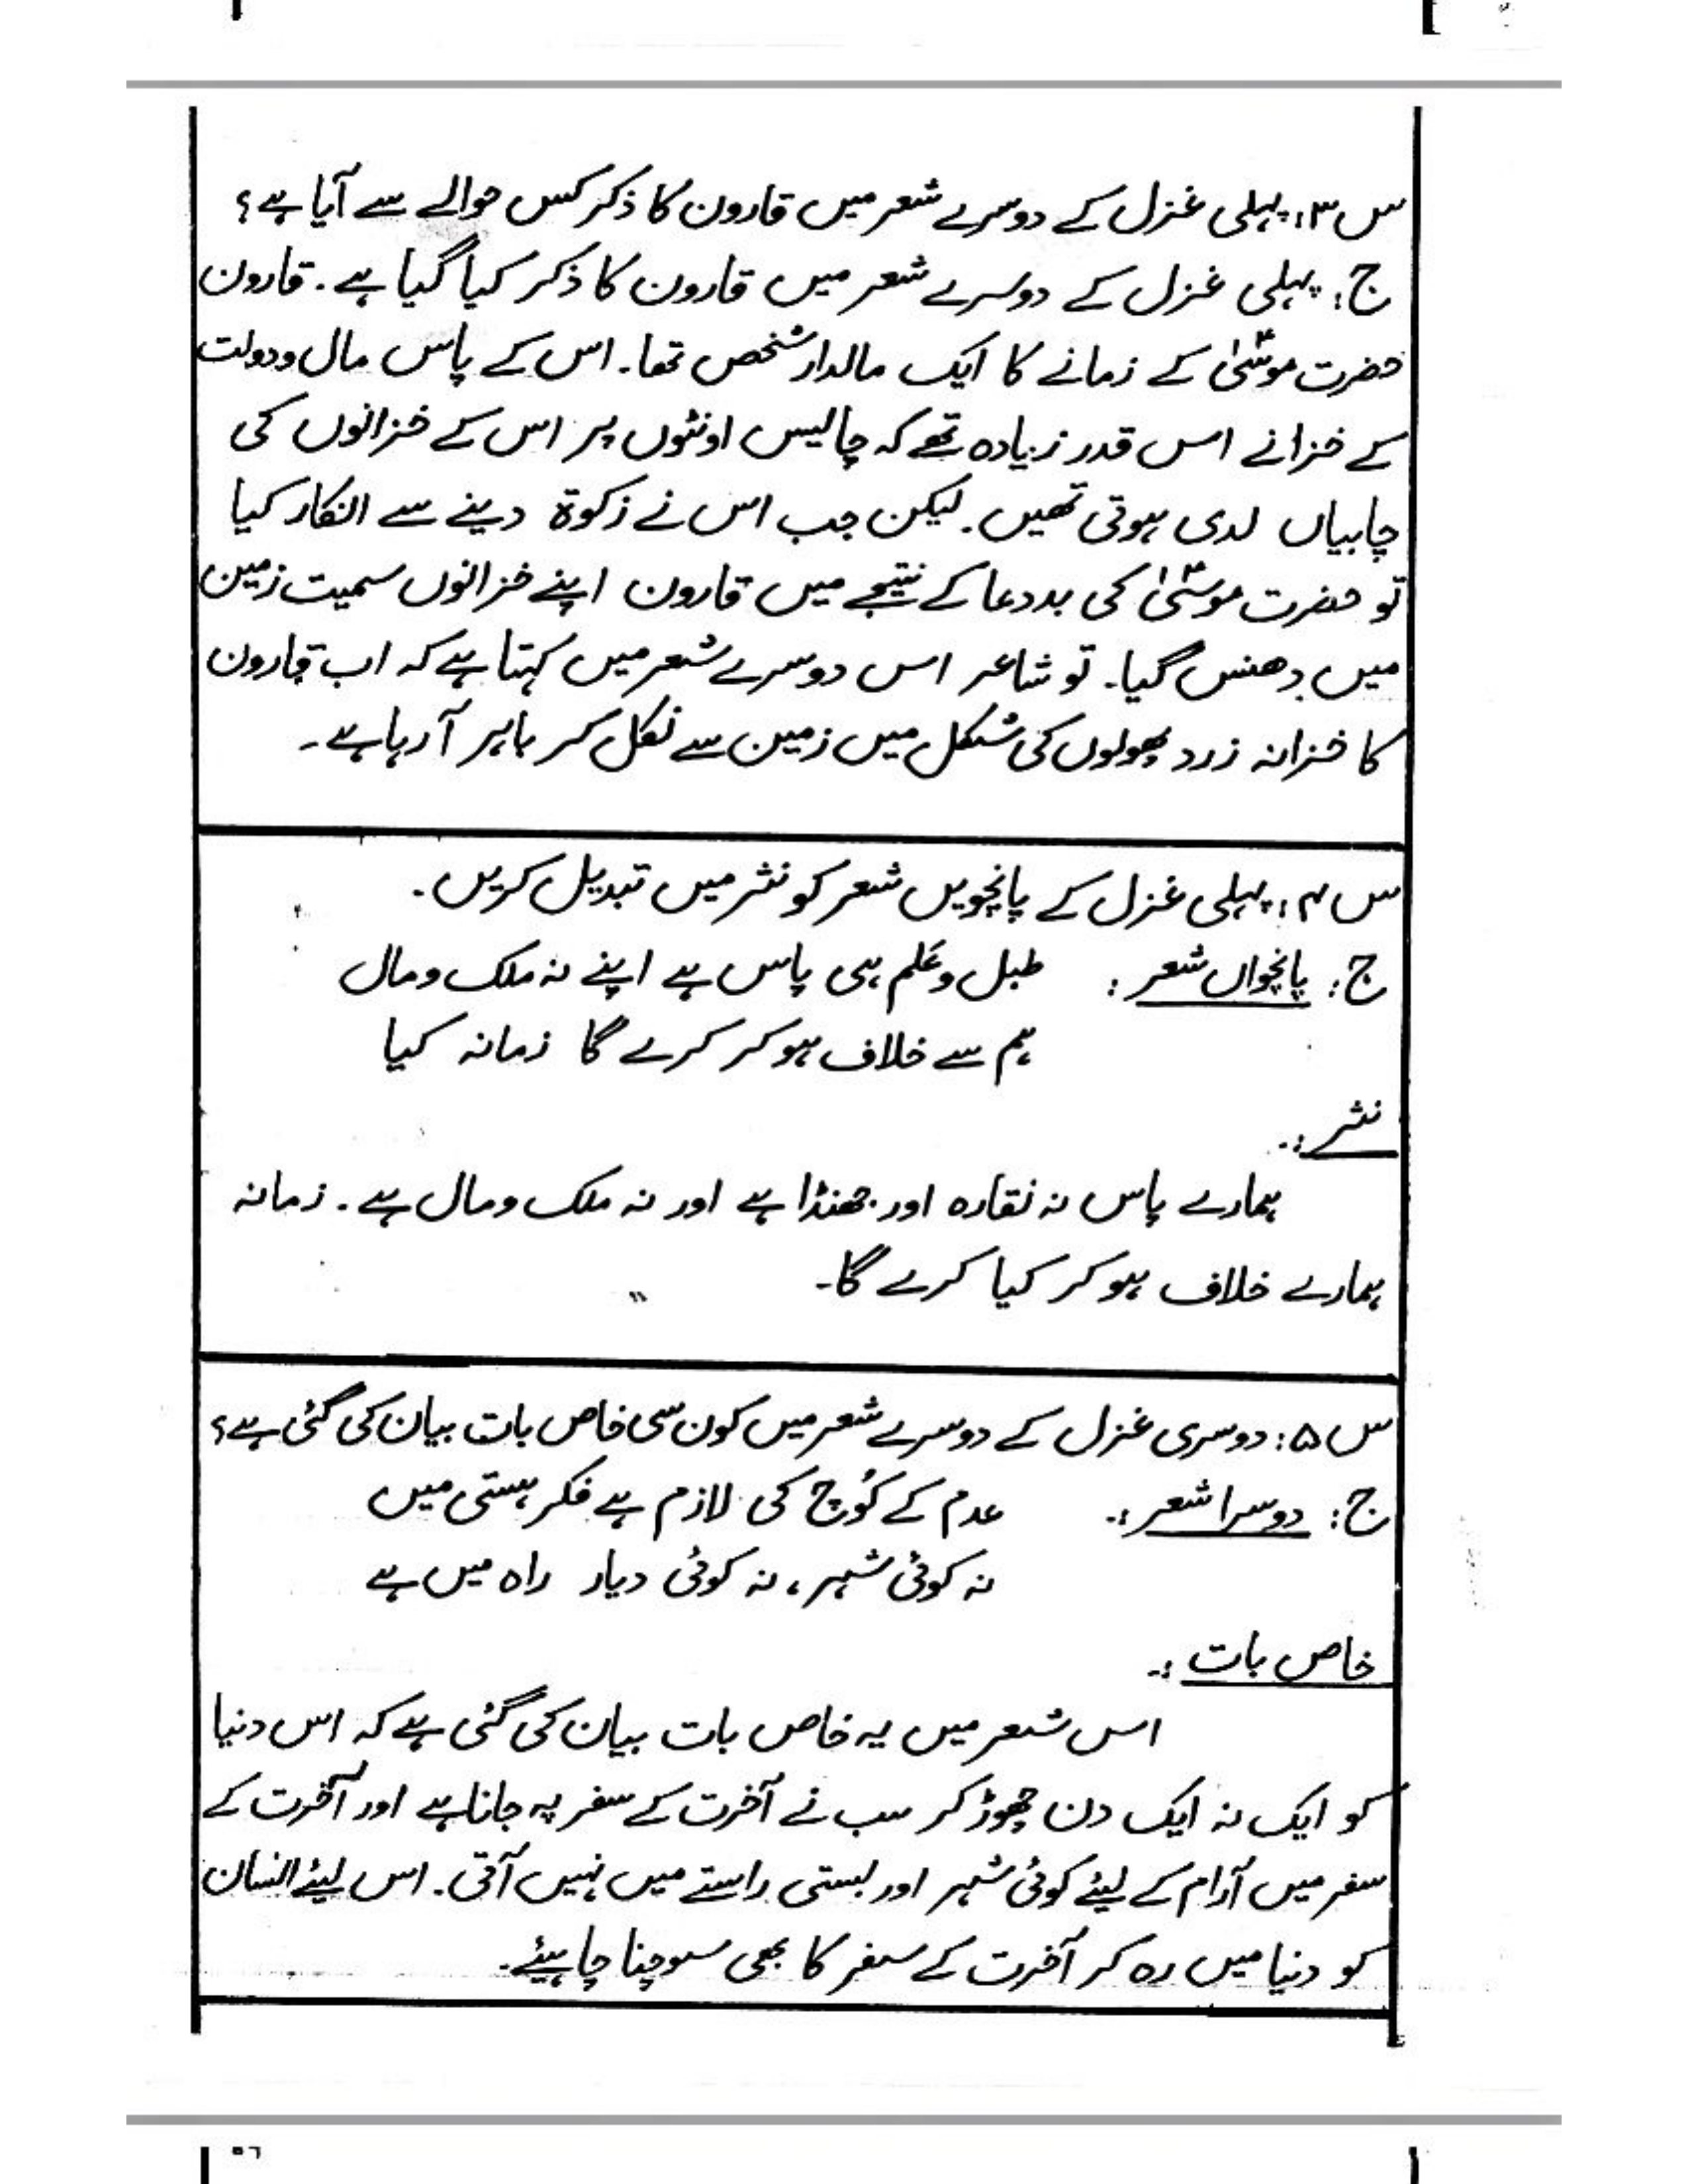 س ۳: پہلی غزل کے دوسرے شعر میں قارون کا ذکر کس حوالے سے آیا ہے؟
ج: پہلی غزل کے دوسرے شعر میں قارون کا ذکر کیا گیا ہے۔ قارون
حضرت موسیٰؑ کے زمانے کا ایک مالدار شخص تھا۔ اس کے پاس مال و دولت
کے خزانے اس قدر زیادہ تھے کہ چالیس اونٹوں پر اس کے خزانوں کی
چابیاں لدی ہوتی تھیں۔ لیکن جب اس نے زکوۃ دینے سے انکار کیا
تو حضرت موسیٰؑ کی بددعا کے نتیجے میں قارون اپنے خزانوں سمیت زمین
میں دھنس گیا۔ تو شاعر اس دوسرے شعر میں کہتا ہے کہ اب قارون
کا خزانہ زرد پھولوں کی شکل میں زمین سے نکل کر باہر آ رہا ہے۔
س ۴: پہلی غزل کے پانچویں شعر کو نثر میں تبدیل کریں۔
ج: پانچواں شعر: طبل و عَلم ہی پاس ہے اپنے نہ ملک و مال
ہم سے خلاف ہو کر کرے گا زمانہ کیا
نثر:۔
ہمارے پاس نہ نقارہ اور جھنڈا ہے اور نہ ملک و مال ہے۔ زمانہ
ہمارے خلاف ہو کر کیا کرے گا۔
س ۵: دوسری غزل کے دوسرے شعر میں کون سی خاص بات بیان کی گئی ہے؟
ج: دوسرا شعر:۔ عدم کے کُوچ کی لازم ہے فکر ہستی میں
نہ کوئی شہر، نہ کوئی دیار راہ میں ہے
خاص بات:۔
اس شعر میں یہ خاص بات بیان کی گئی ہے کہ اس دنیا
کو ایک نہ ایک دن چھوڑ کر سب نے آخرت کے سفر پہ جانا ہے اور آخرت کے
سفر میں آرام کے لیئے کوئی شہر اور بستی راستے میں نہیں آتی۔ اس لیئے انسان
کو دنیا میں رہ کر آخرت کے سفر کا بھی سوچنا چاہیئے۔